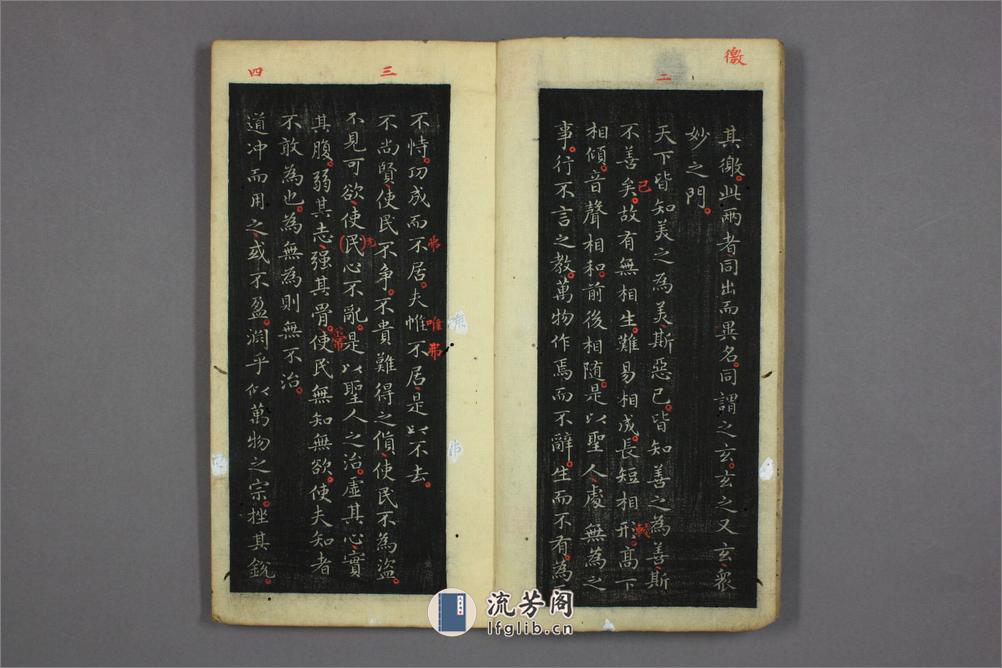 徼
二
其徼此兩者同出而異名同謂之玄玄之又玄衆
妙之門
天下皆知美之為美斯惡已皆知善之為善斯
不善矣故有無相生難易相成長短相形高下
已
較
相傾音聲相和前後相隨是以聖人處無為之
事行不言之教萬物作焉而不辭生而不有為
三
四
不恃功成而不居夫惟不居是以不去
弗
唯
弗
不尚賢使民不争不貴難得之貨使民不為盗
不見可欲使(民)心不亂是以聖人之治虛其心實
其腹弱其志强其骨使民無知無欲使夫知者
常
不敢為也為無為則無不治
道冲而用之或不盈淵乎似萬物之宗挫其銳
流芳阁
lfglib.cn